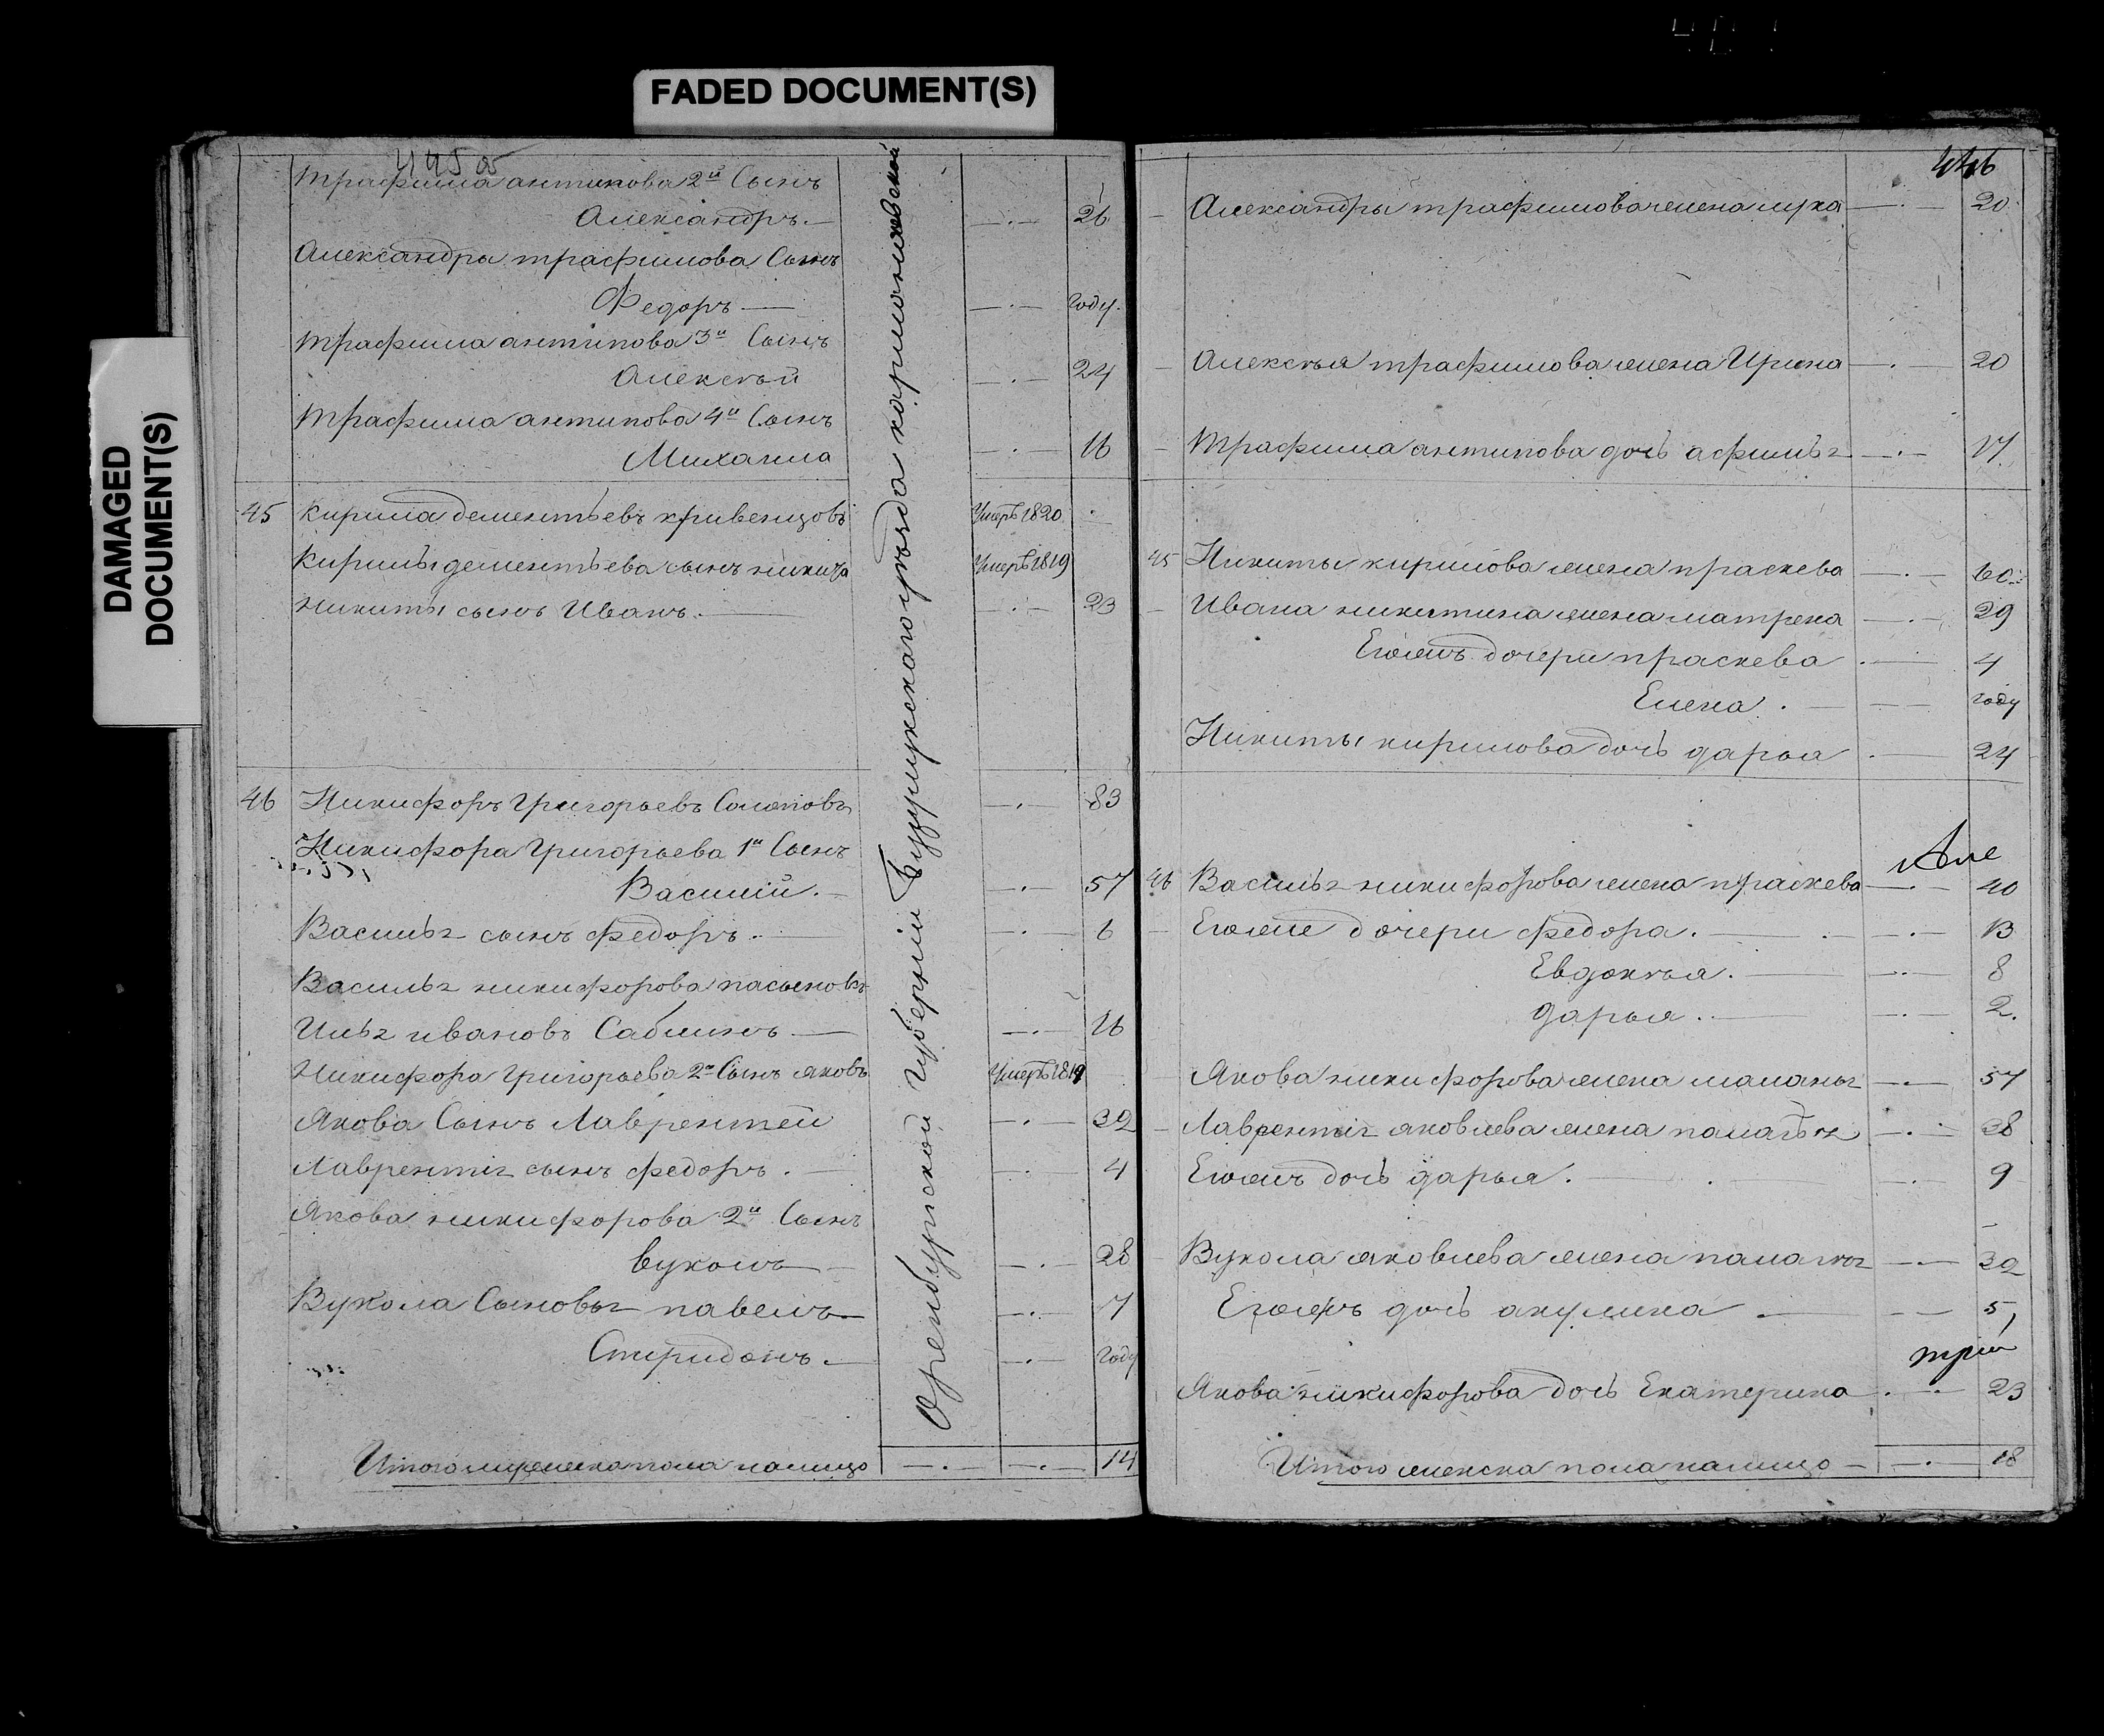 FADED DOCUMENT(S)
DAMAGED
DOCUMENT(S)
445 об
Трафима антипова 2й Сынъ
Александръ. — 26
Александра трафимова Сынъ
Федоръ — году.
Трафима антипова 3й Сынъ
Алексѣй — 24
Трафима антипова 4й Сынъ
Михаила — 16
45 Кирила дементьевъ кривенцовъ Умеръ 1820
Кирилы дементьева сынъ никита Умеръ 1819
никиты сынъ Иванъ. — 23
46 Никифоръ Григорьевъ Солоповъ — 83
Никифора Григорьева 1й Сынъ
Василий. — 57
Василья сынъ федоръ. — 6
Василья никифорова пасынокъ
Илья ивановъ Саблинъ — 16
Никифора Григорьева 2й Сынъ яковъ Умеръ 1819
Якова Сынъ Лаврентей — 32
Лаврентия сынъ федоръ. — 4
Якова никифорова 2й Сынъ
Вуколъ — 28
Вукола Сыновья павелъ — 7
Спиридонъ. — году
Итого мужеска пола налицо — 14
Оренбурской Губернии Бузулукского уезда
446
Александры трафимова жена лукa — 20
Алексѣя трафимова жена Ирина — 20
Трафима антипова дочь афимья — 17
45 Никиты кирилова жена праскева — 60
Ивана никитина жена матрена — 29
Егожъ дочери праскева — 4
Елена. — году
Никиты кирилова дочь дарья — 24
46 Василья никифорова жена праскева — 40
Егоже дочери федора. — 13
Евдокѣя. — 8
дарья. — 2.
Якова никифорова жена маланья — 57
Лаврентия яковлева жена палагья — 38
Егожъ дочь дарья. — 9
Вукола яковлева жена палагея — 32
Егожъ дочь акулина — 5
Якова никифорова дочь Екатерина — 23
Итого женска пола налицо — 18